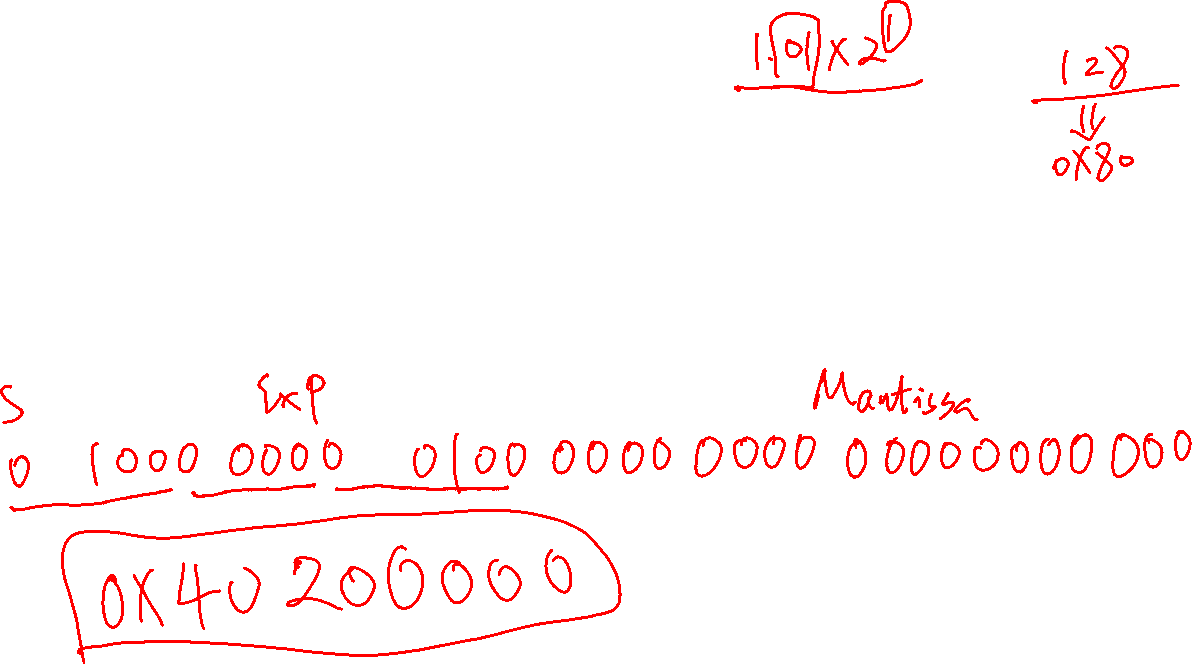 1.01 x 2^1
128
⇓
0x80
S Exp Mantissa
0 1000 0000 0100 0000 0000 00000000 000
0x40200000